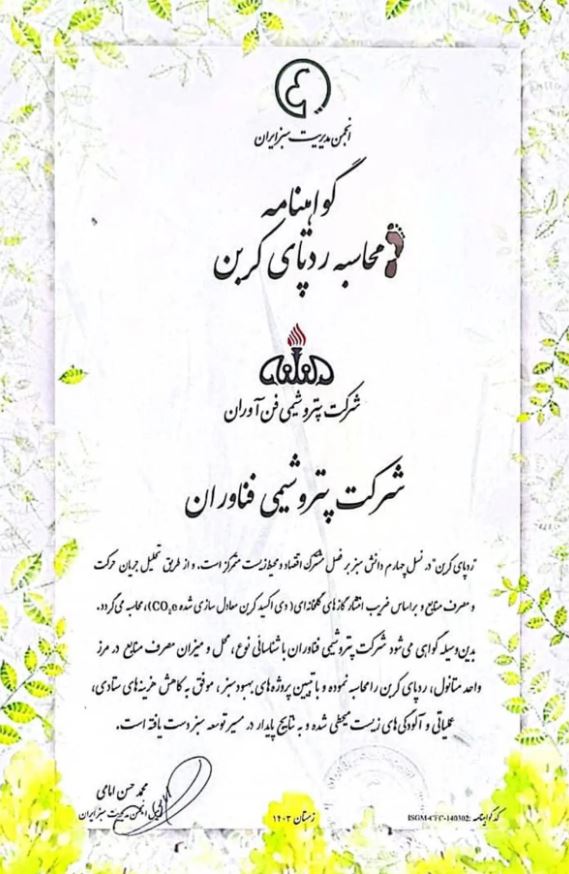 انجمن مدیریت سبز ایران
گواهینامه
محاسبه ردپای کربن
شرکت پتروشیمی فن آوران
شرکت پتروشیمی فناوران
"ردپای کربن" در نسل چهارم دانش سبز بر فصل مشترک اقتصاد و محیط زیست متمرکز است. و از طریق تحلیل جریان حرکت
و مصرف منابع و براساس ضریب انتشار گازهای گلخانه‌ای (دی اکسید کربن معادل سازی شده CO₂e))، محاسبه می‌گردد.
بدین‌وسیله گواهی می‌شود شرکت پتروشیمی فناوران با شناسائی نوع، محل و میزان مصرف منابع در مرز
واحد متانول، ردپای کربن را محاسبه نموده و با تبیین پروژه‌های بهبود سبز، موفق به کاهش هزینه‌های ستادی،
عملیاتی و آلودگی‌های زیست محیطی شده و به نتایج پایدار در مسیر توسعه سبز دست یافته است.
محمد حسن امامی
انجمن مدیریت سبز ایران
زمستان ۱۴۰۳
کد گواهینامه: ISGM-CFC-140302